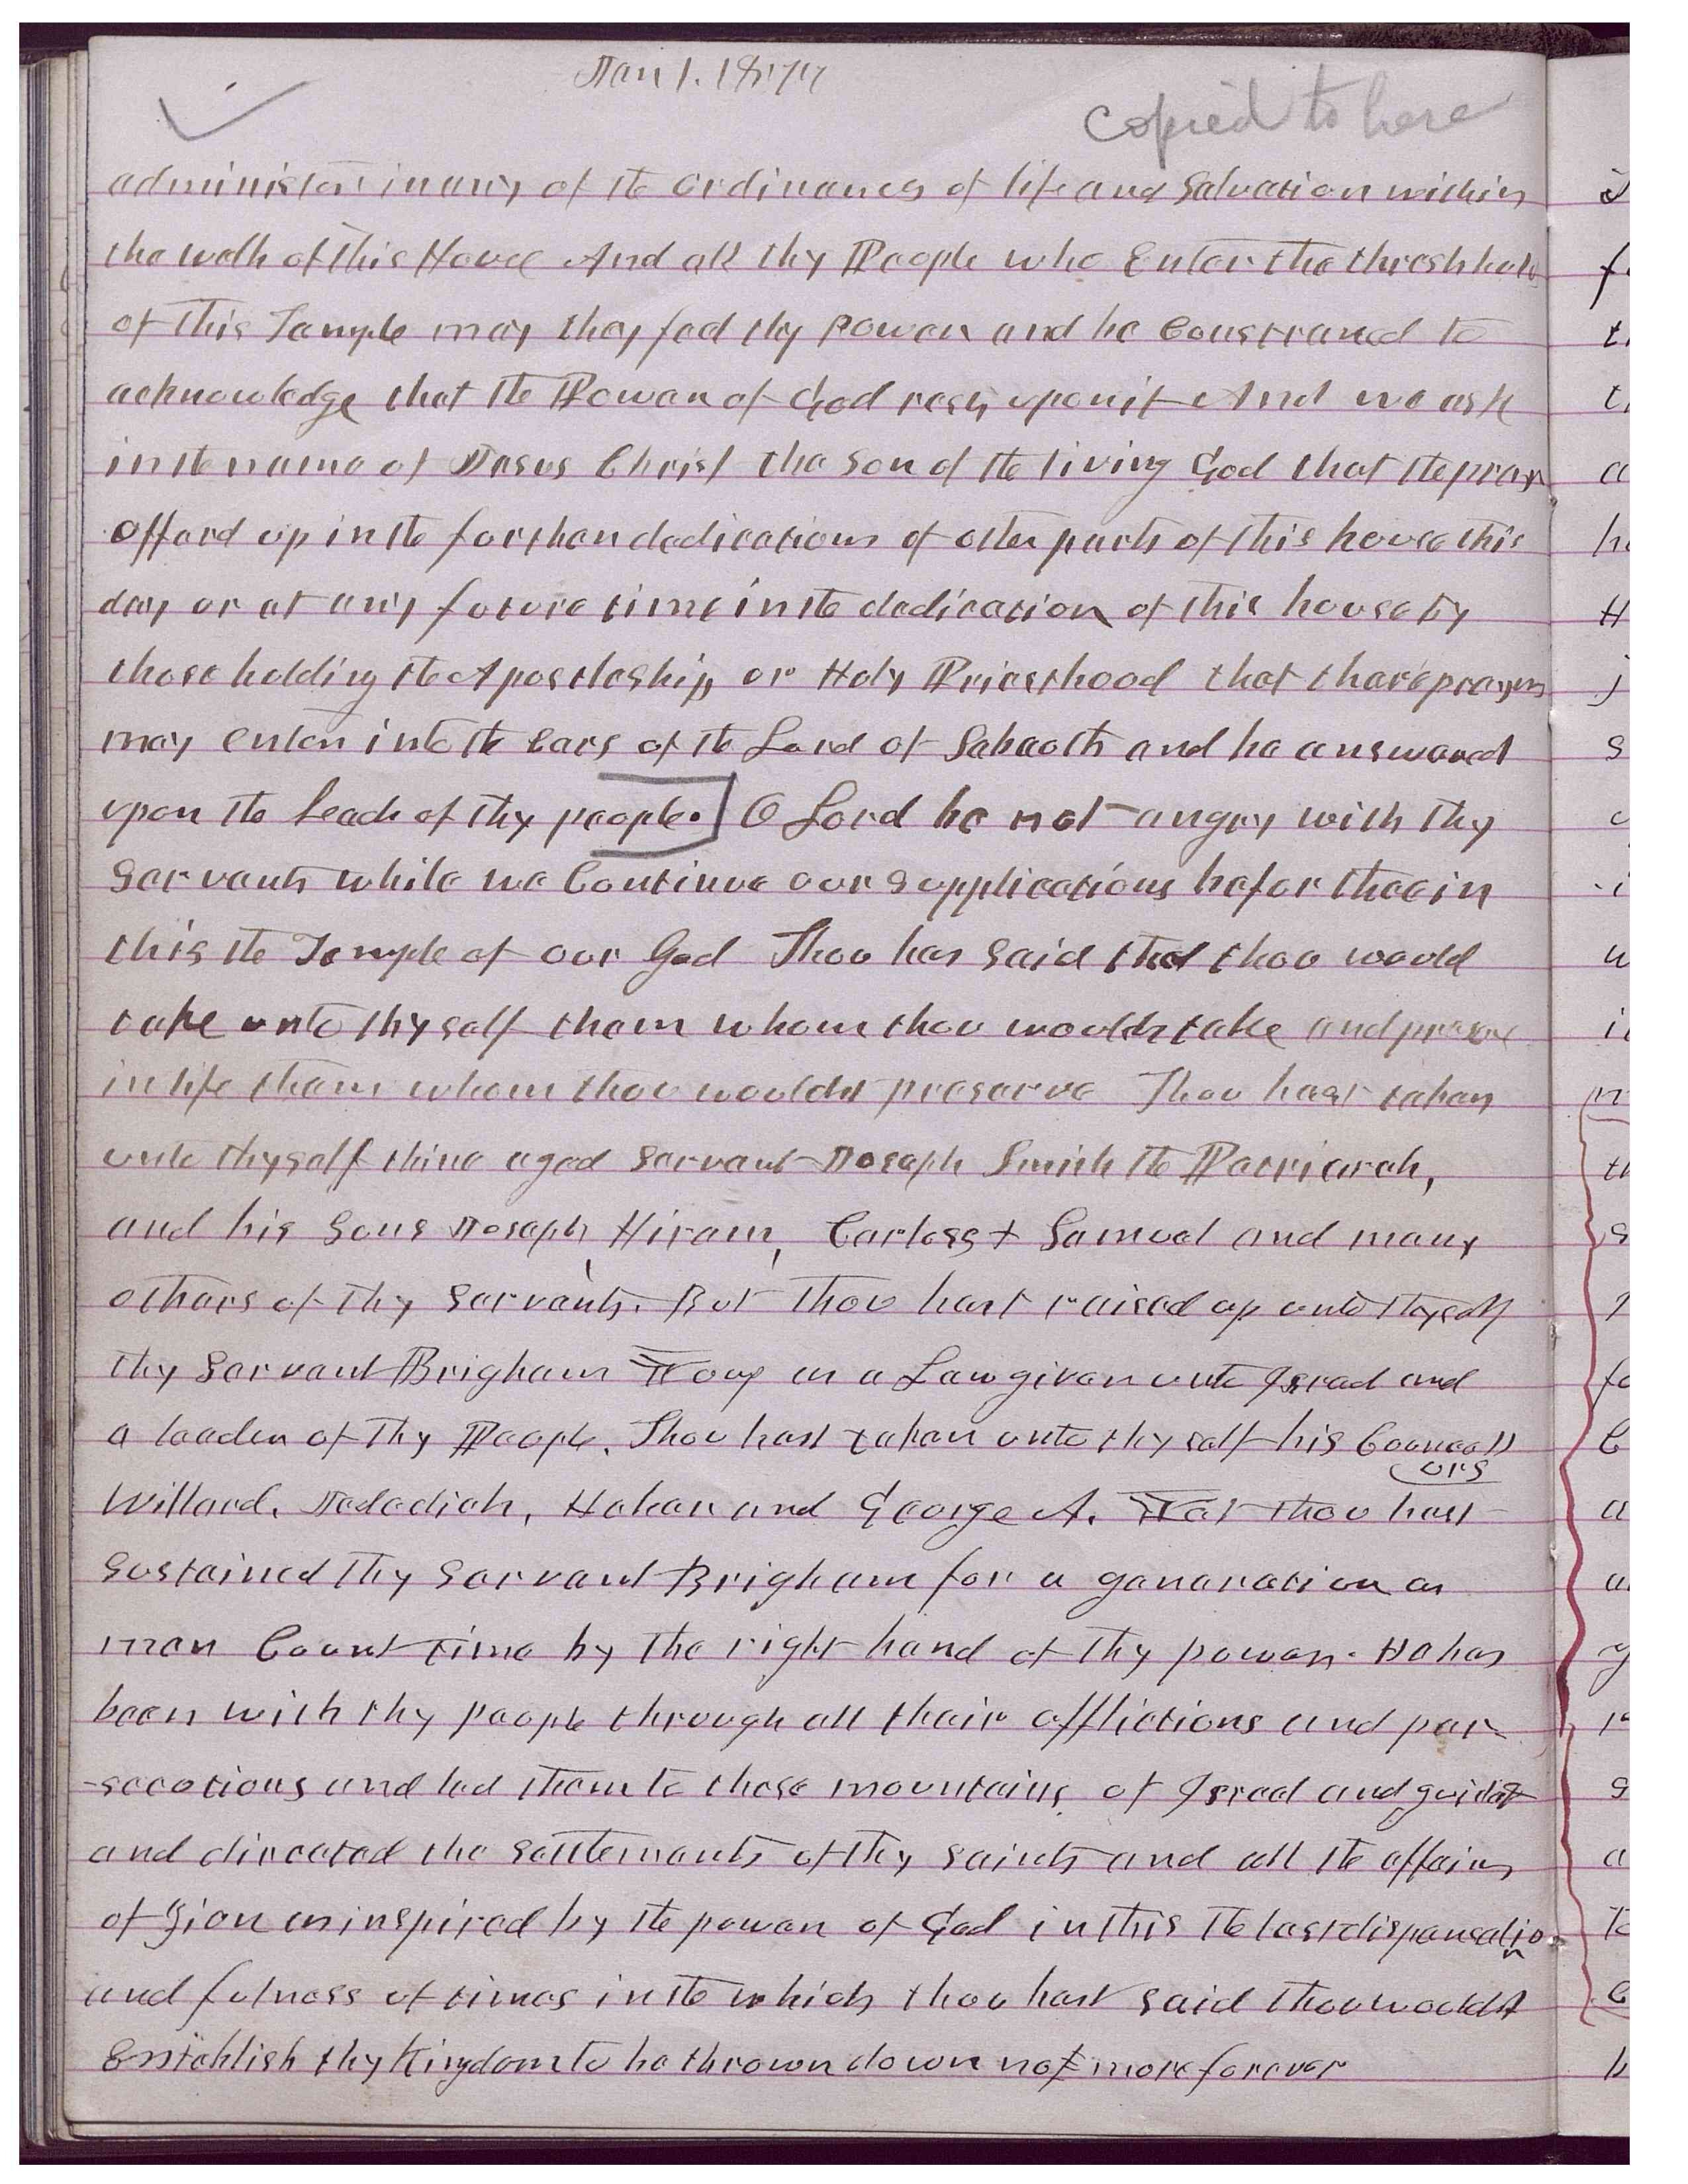 Jan 1. 1877
copied to here
administer in any of the ordinances of life and Salvation within
the walls of this House And all thy People who Enter the threshhold
of this Temple may they feel thy power and be Constrained to
acknowledge that the Power of God rests upon it And we ask
in the name of Jesus Christ the Son of the living God that the prayer
offerd up in the further dedications of other parts of this house this
day or at any future time in the dedication of this house by
those holding the Apostleship or Holy Priesthood that there prayers
may enter into the ears of the Lord of Sabaoth and be answered
upon the heads of thy people.] O Lord be not angry with thy
Servants while we Continue our supplications befor thee in
this the Temple of our God Thou has said that thou would
take unto thyself them whom thou wouldst take and preserve
in life them whom thou wouldst preserve Thou hast taken
unto thyself thine aged servant Joseph Smith the Patriarch,
and his Sons Joseph, Hiram, Carloss + Samuel and many
others of thy servants. But thou hast raised up unto thyself
thy servant Brigham Young as a Lawgiver unto Israel and
a leader of thy People. Thou hast taken unto thyself his Councell
ors
Willard. Jedadiah, Heber and George A. Yet thou hast
sustained thy servant Brigham for a generation as
men Count time by the right hand of thy power. He has
been with thy people through all their afflictions and per-
-secutions and led them to these mountains of Israel and guided
and directed the settlements of thy saints and all the affairs
of Zion as inspired by the power of God in this the last dispensation
and fulness of times in the which thou hast said thou wouldst
Esstablish thy Kingdom to be thrown down not more forever